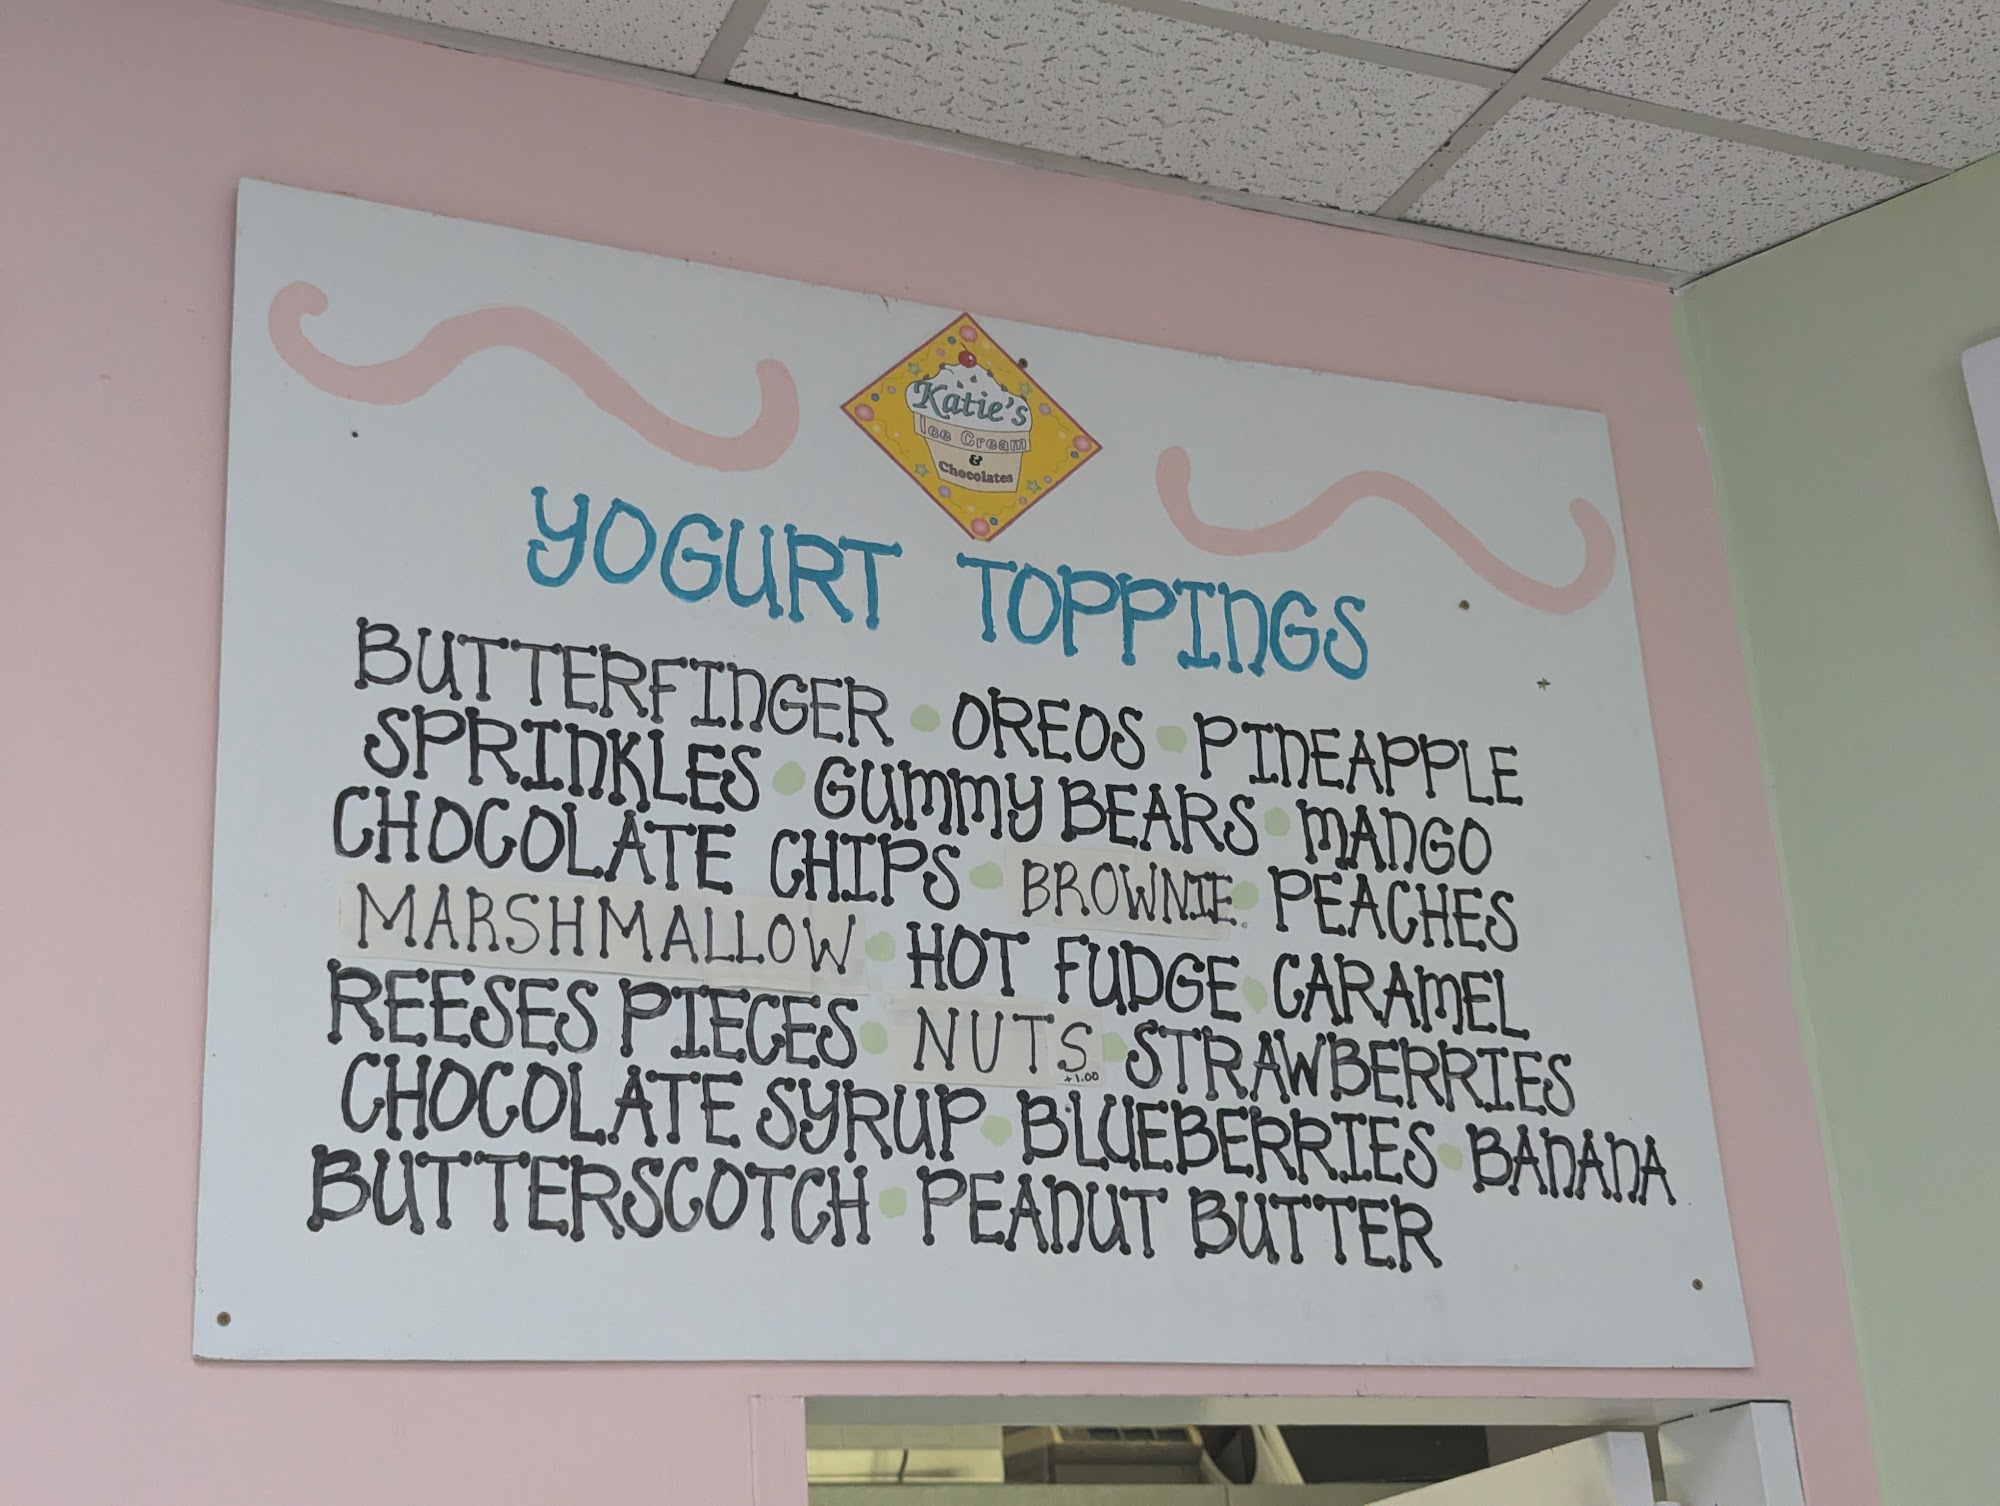 Katie's
Ice Cream
&
Chocolates
YOGURT TOPPINGS
BUTTERFINGER • OREOS • PINEAPPLE
SPRINKLES • GUMMY BEARS • MANGO
CHOCOLATE CHIPS • BROWNIE • PEACHES
MARSHMALLOW • HOT FUDGE • CARAMEL
REESES PIECES • NUTS +1.00 • STRAWBERRIES
CHOCOLATE SYRUP • BLUEBERRIES • BANANA
BUTTERSCOTCH • PEANUT BUTTER